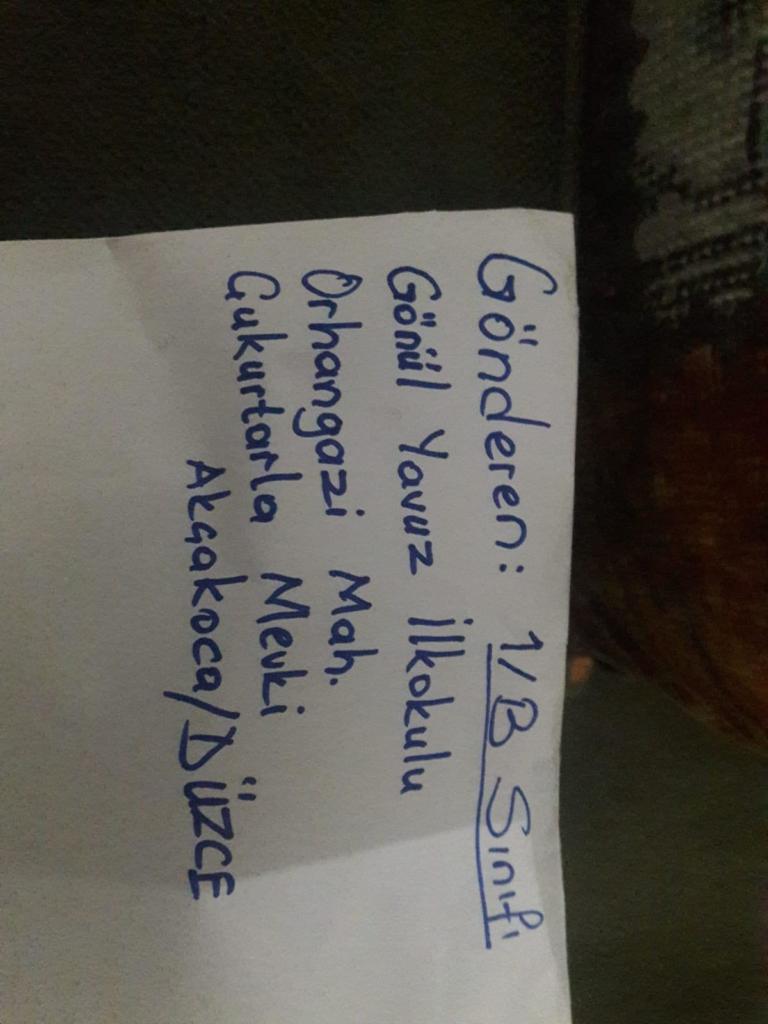 Gönderen: 1/B Sınıfı
Gönül Yavuz İlkokulu
Orhangazi Mah.
Çukurtarla Mevki
Akçakoca/DÜZCE